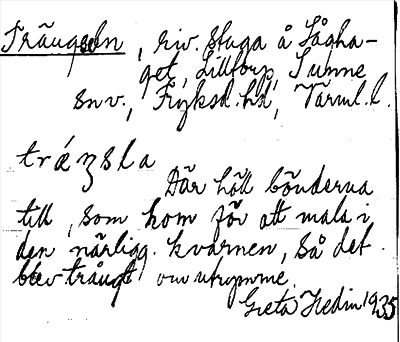 Trängseln, riv. stuga å Lågha-
get, Lillforp, Sunne
snv., Fryksd. hd, Värml. l.
träŋsla
Där höll bönderna
till, som kom för att mala i
den närligg. kvarnen, så det
blev trångt om utrymme.
Greta Hedin 1935